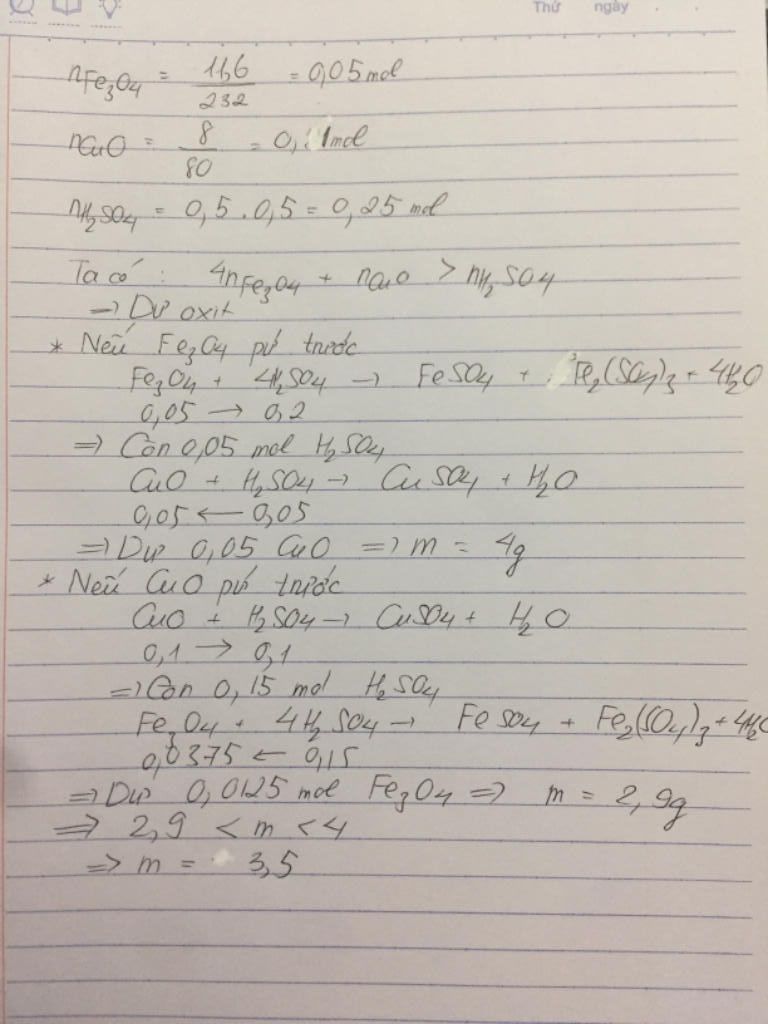 Thứ ngày
nFe3O4 = 11,6/232 = 0,05 mol
nCuO = 8/80 = 0,1 mol
nH2SO4 = 0,5 . 0,5 = 0,25 mol
Ta có : 4nFe3O4 + nCuO > nH2SO4
=> Dư oxit
* Nếu Fe3O4 pứ trước
Fe3O4 + 4H2SO4 → FeSO4 + Fe2(SO4)3 + 4H2O
0,05 → 0,2
=> Còn 0,05 mol H2SO4
CuO + H2SO4 → CuSO4 + H2O
0,05 ← 0,05
=> Dư 0,05 CuO => m = 4g
* Nếu CuO pứ trước
CuO + H2SO4 → CuSO4 + H2O
0,1 → 0,1
=> Còn 0,15 mol H2SO4
Fe3O4 + 4H2SO4 → FeSO4 + Fe2(SO4)3 + 4H2O
0,0375 ← 0,15
=> Dư 0,0125 mol Fe3O4 => m = 2,9g
=> 2,9 < m < 4
=> m = 3,5